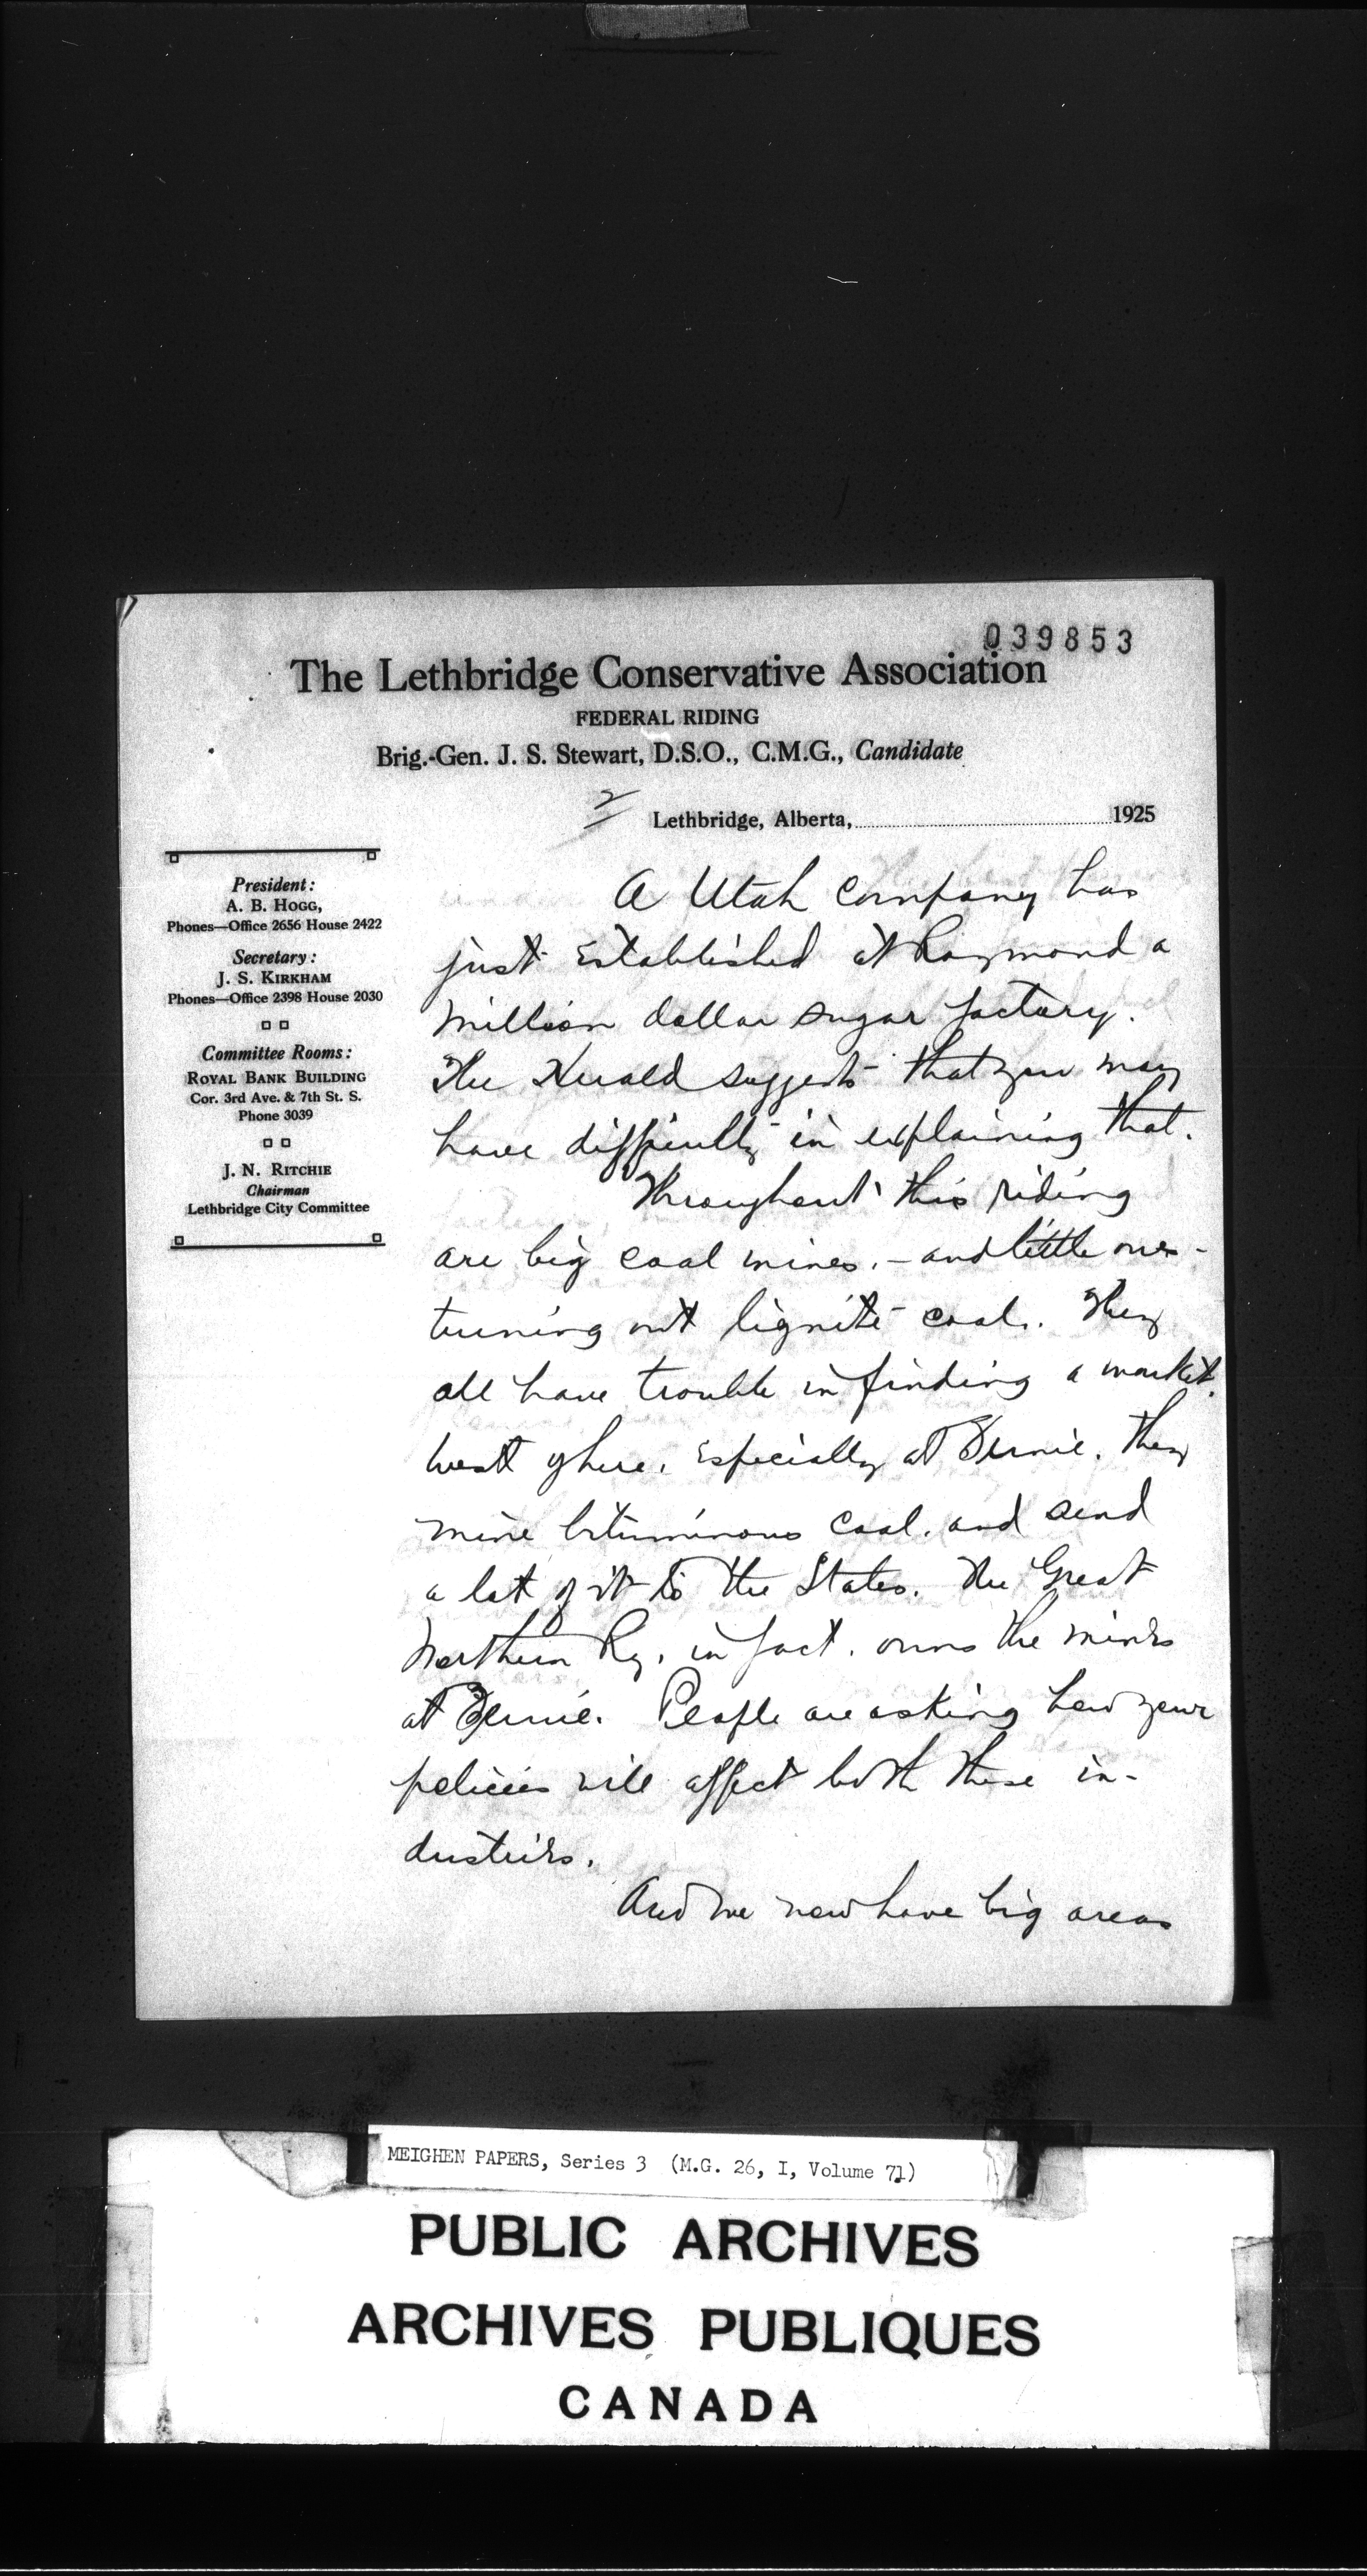 039853
The Lethbridge Conservative Association
FEDERAL RIDING
Brig.-Gen. J. S. Stewart, D.S.O., C.M.G., Candidate
2
Lethbridge, Alberta,..........1925
President:
A. B. HOGG,
Phones—Office 2656 House 2422
Secretary:
J. S. KIRKHAM
Phones—Office 2398 House 2030
Committee Rooms:
ROYAL BANK BUILDING
Cor. 3rd Ave. & 7th St. S.
Phone 3039
J. N. RITCHIE
Chairman
Lethbridge City Committee
A Utah Company has
just established at Raymond a
million dollar sugar factory.
The Herald suggests that you may
have difficulty in explaining that.
Throughout this riding
are big coal mines, - and little ones -
turning out lignite coal. They
all have trouble in finding a market.
West of here, especially at Fernie, they
mine bituminous coal, and send
a lot of it to the States. The Great
Northern Ry, in fact, owns the mines
at Fernie. People are asking how your
policies will affect both these in-
dustries.
And we now have big areas
MEIGHEN PAPERS, Series 3 (M.G. 26, I, Volume 71)
PUBLIC ARCHIVES
ARCHIVES PUBLIQUES
CANADA